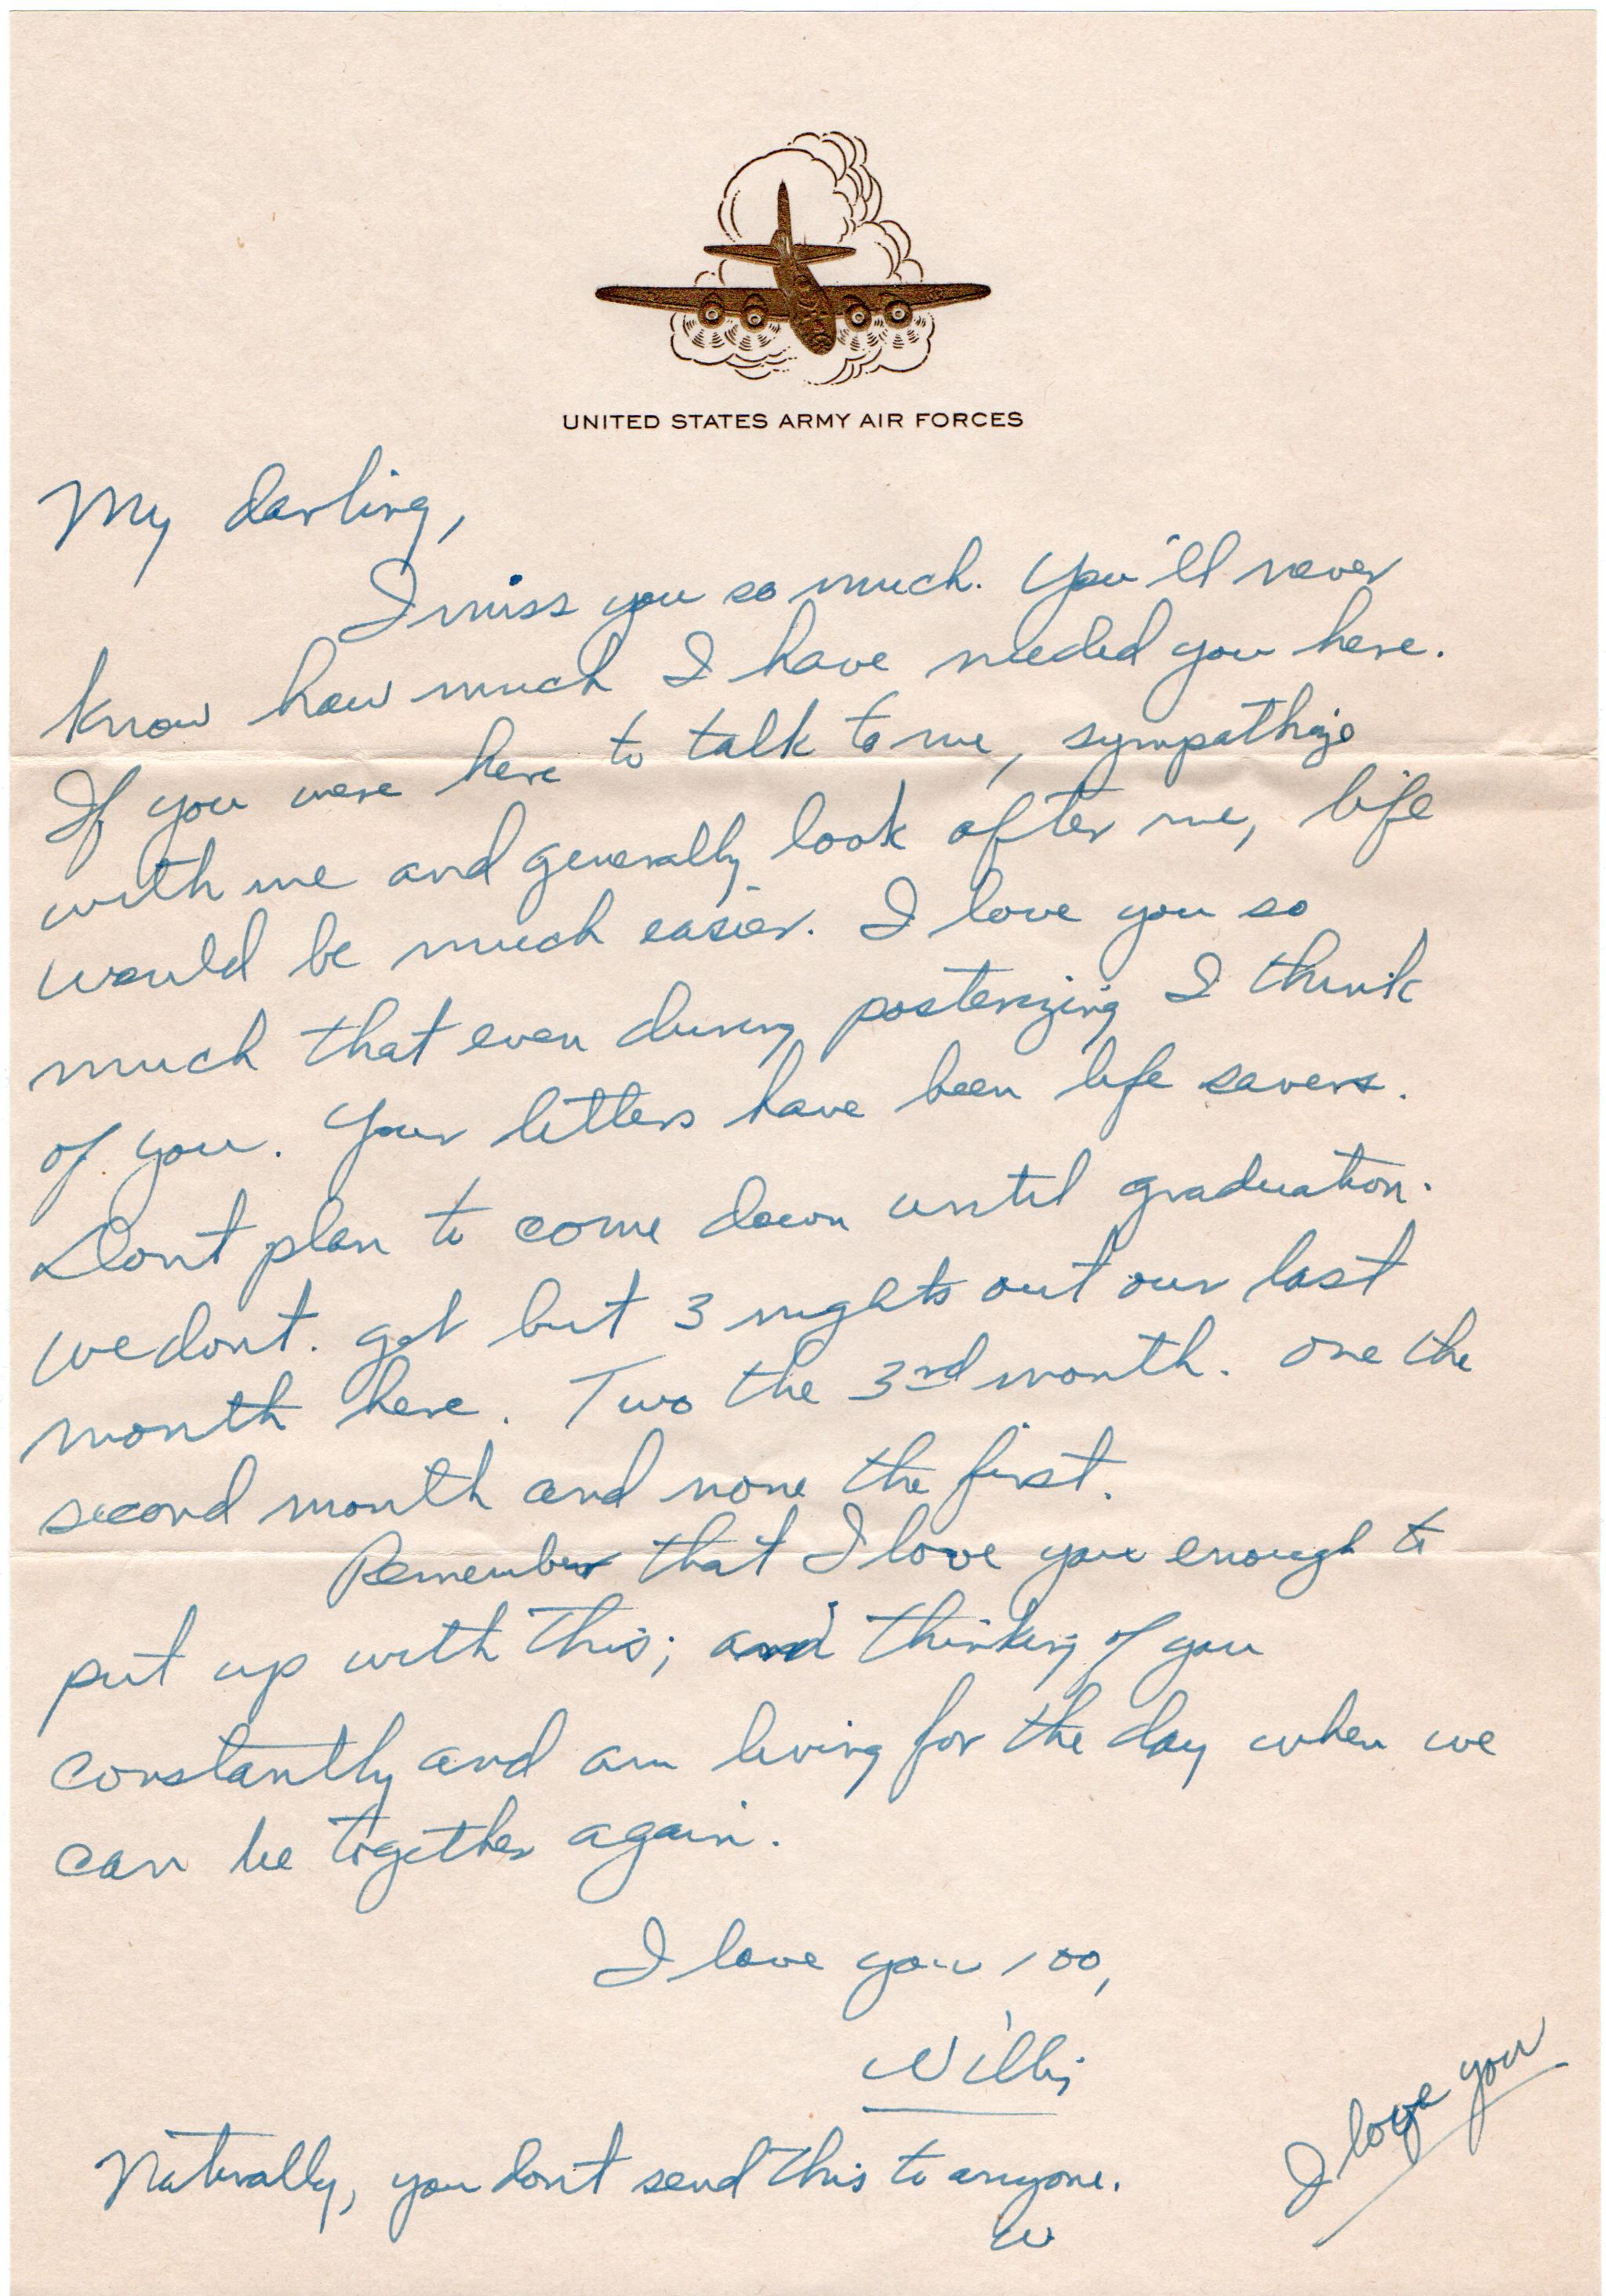 UNITED STATES ARMY AIR FORCES
My darling,
I miss you so much. You'll never
know how much I have needed you here.
If you were here to talk to me, sympathize
with me and generally look after me, life
would be much easier. I love you so
much that even during posterizing I think
of you. Your letters have been life savers.
Don't plan to come down until graduation.
We dont. get but 3 nights out our last
month here. Two the 3rd month. One the
second month and none the first.
Remember that I love you enough to
put up with this; and thinking of you
constantly and am living for the day when we
can be together again.
I love you 100,
Willis
I love you
Naturally, you don't send this to anyone.
W